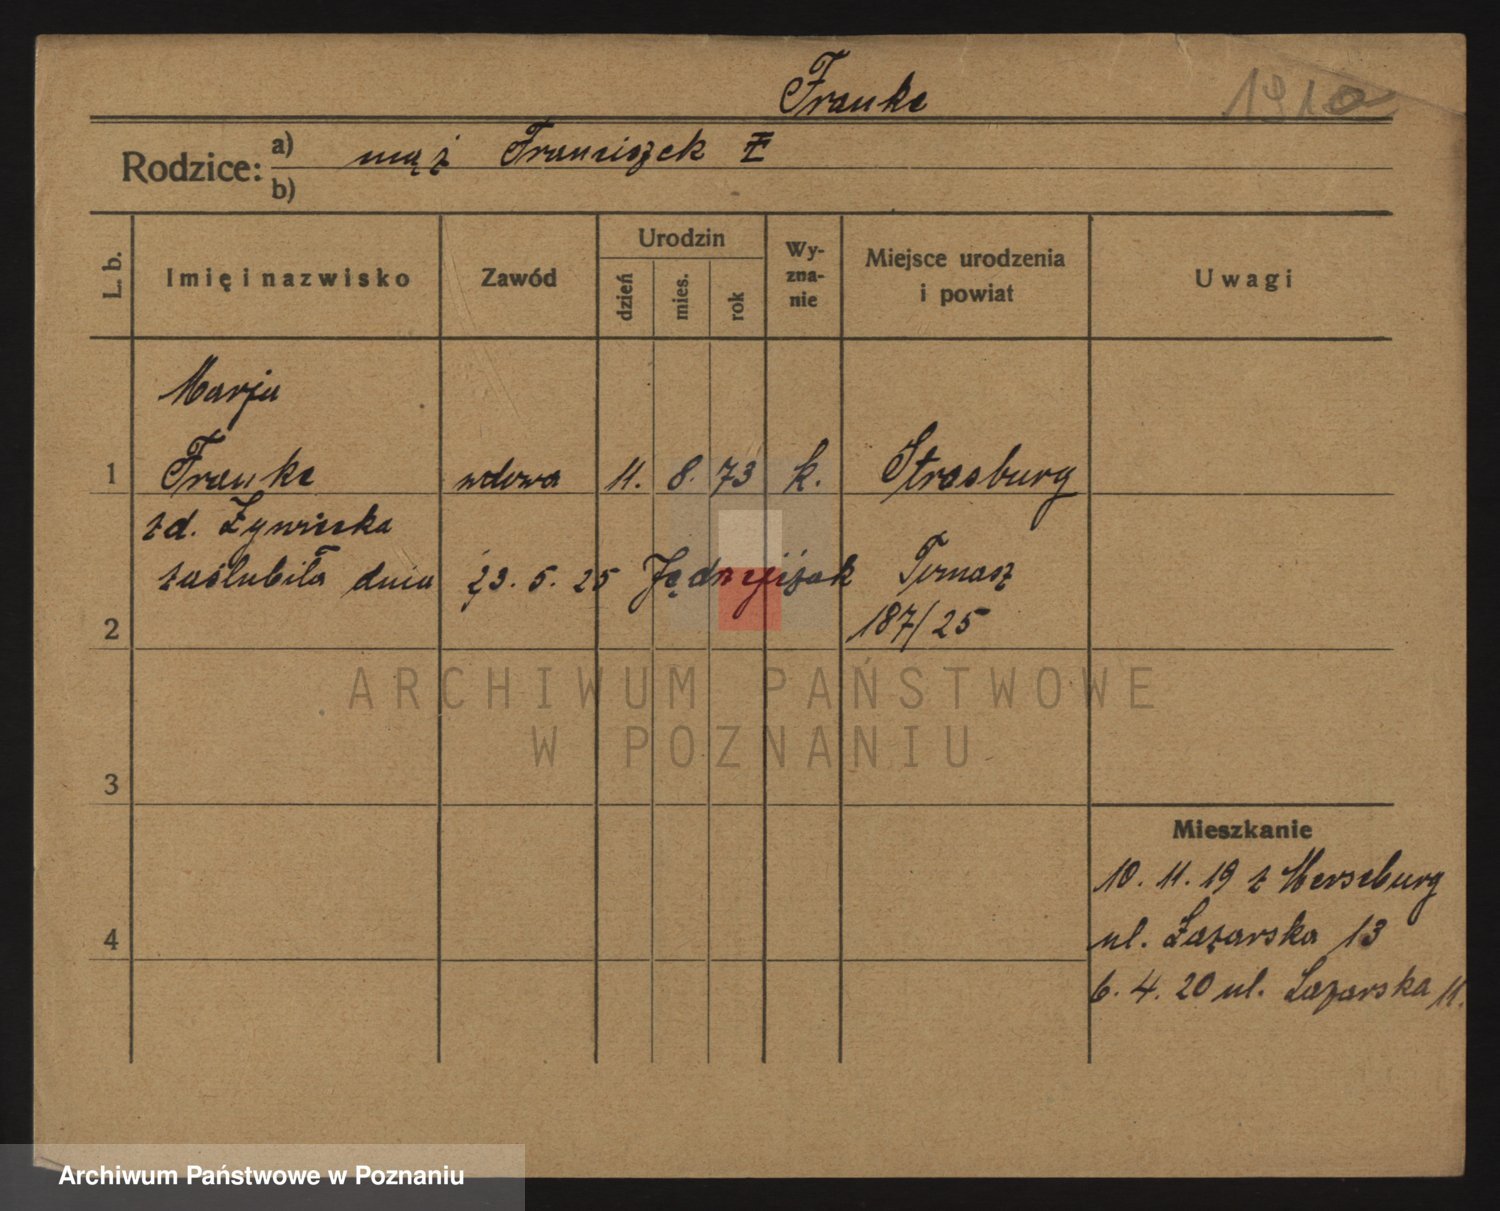 Franke
1910
Rodzice: a) mąż Franciszek
b)
L. b.
Imię i nazwisko
Zawód
Urodzin
dzień
mies.
rok
Wy-
zna-
nie
Miejsce urodzenia
i powiat
Uwagi
Marja
1 Franke wdowa 11. 8. 73 k. Strasburg
zd. Żywicka
zaślubiła dnia 23. 5. 25 Jędrzejczak Tomasz
2 187/25
ARCHIWUM PAŃSTWOWE
W POZNANIU
3
Mieszkanie
10. 11. 19 z Merseburg
4 ul. Łazarska 13
6. 4. 20 ul. Łazarska 11.
Archiwum Państwowe w Poznaniu